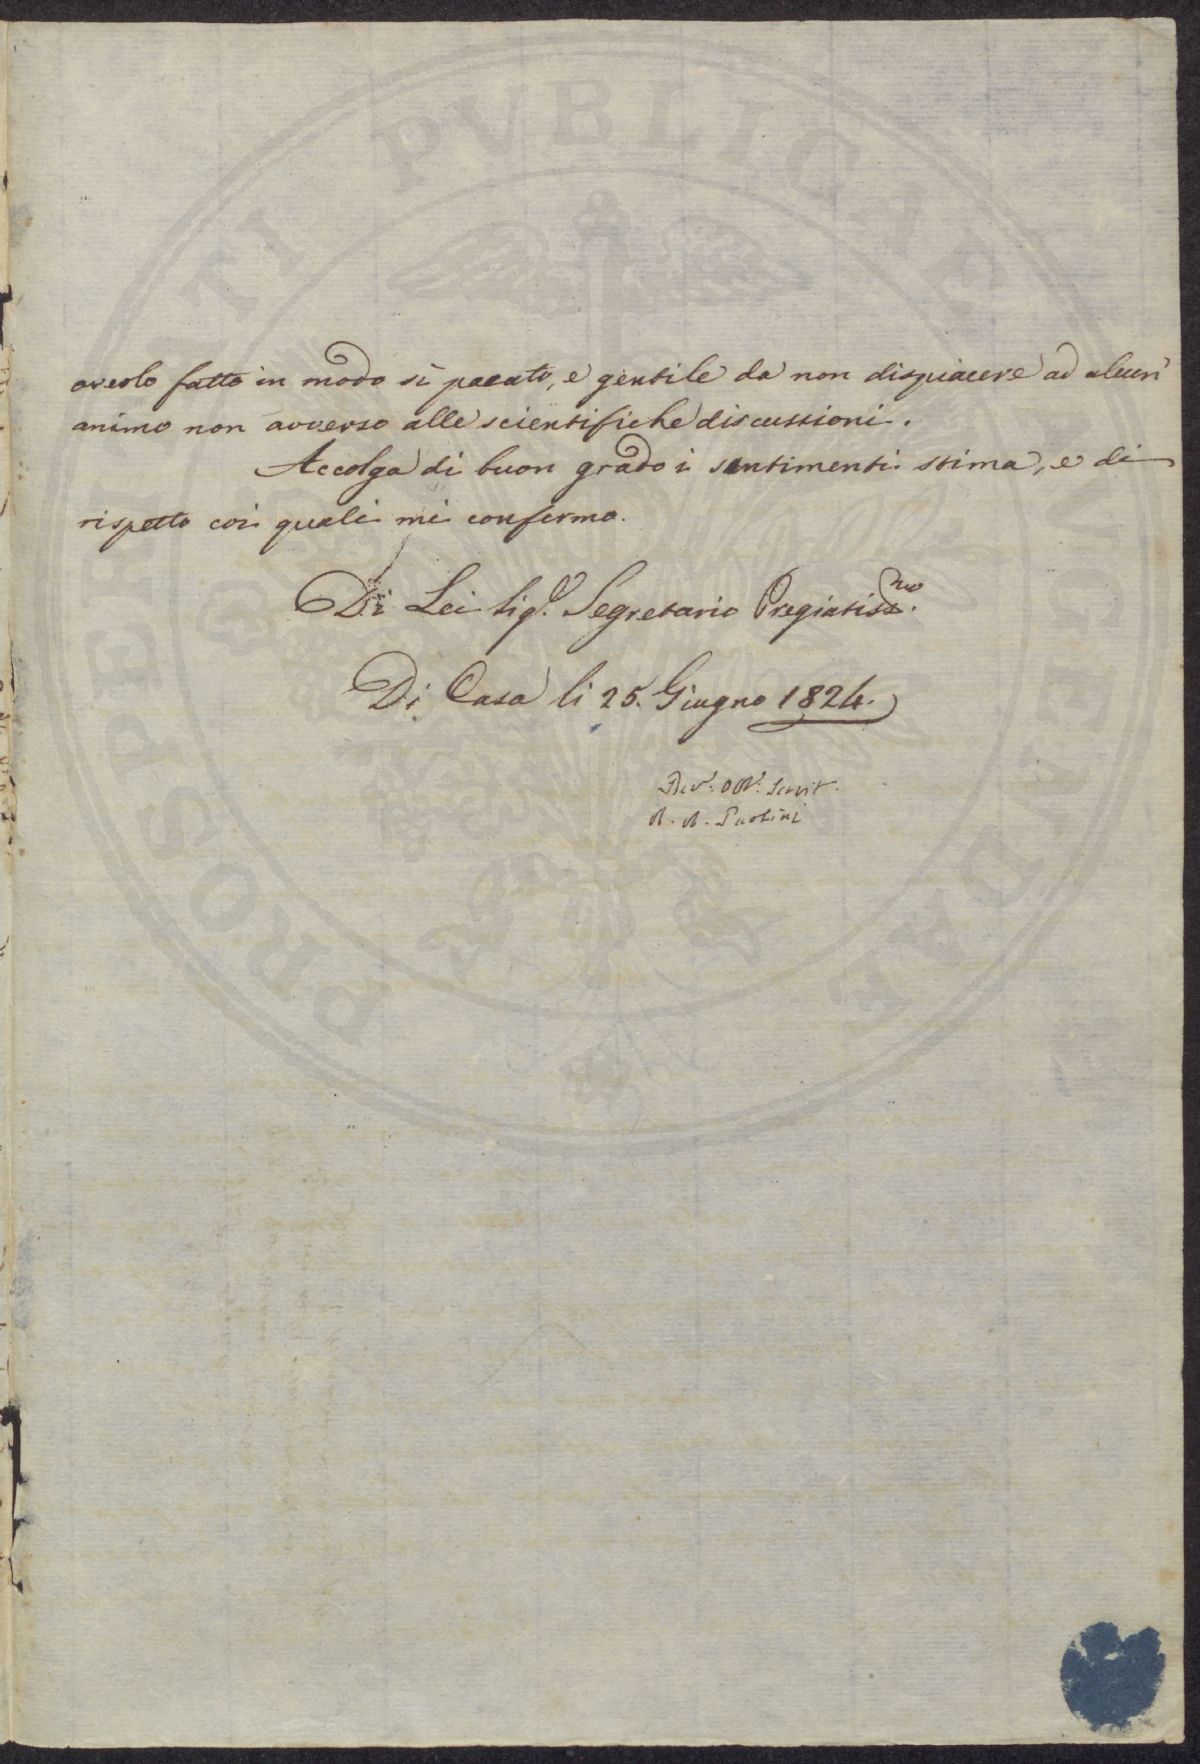 PROSPERITATI PVBLICAE AVGENDAE
averlo fatto in modo sì pacato, e gentile da non dispiacere ad alcun
animo non avverso alle scientifiche discussioni.
Accolga di buon grado i sentimenti stima, e di
rispetto coi quali mi confermo.
Di Lei Sig.r Segretario Pregiatiss.mo
Di Casa li 25. Giugno 1824.
Dev.: Obb.: Servit.
A. A. Paolini